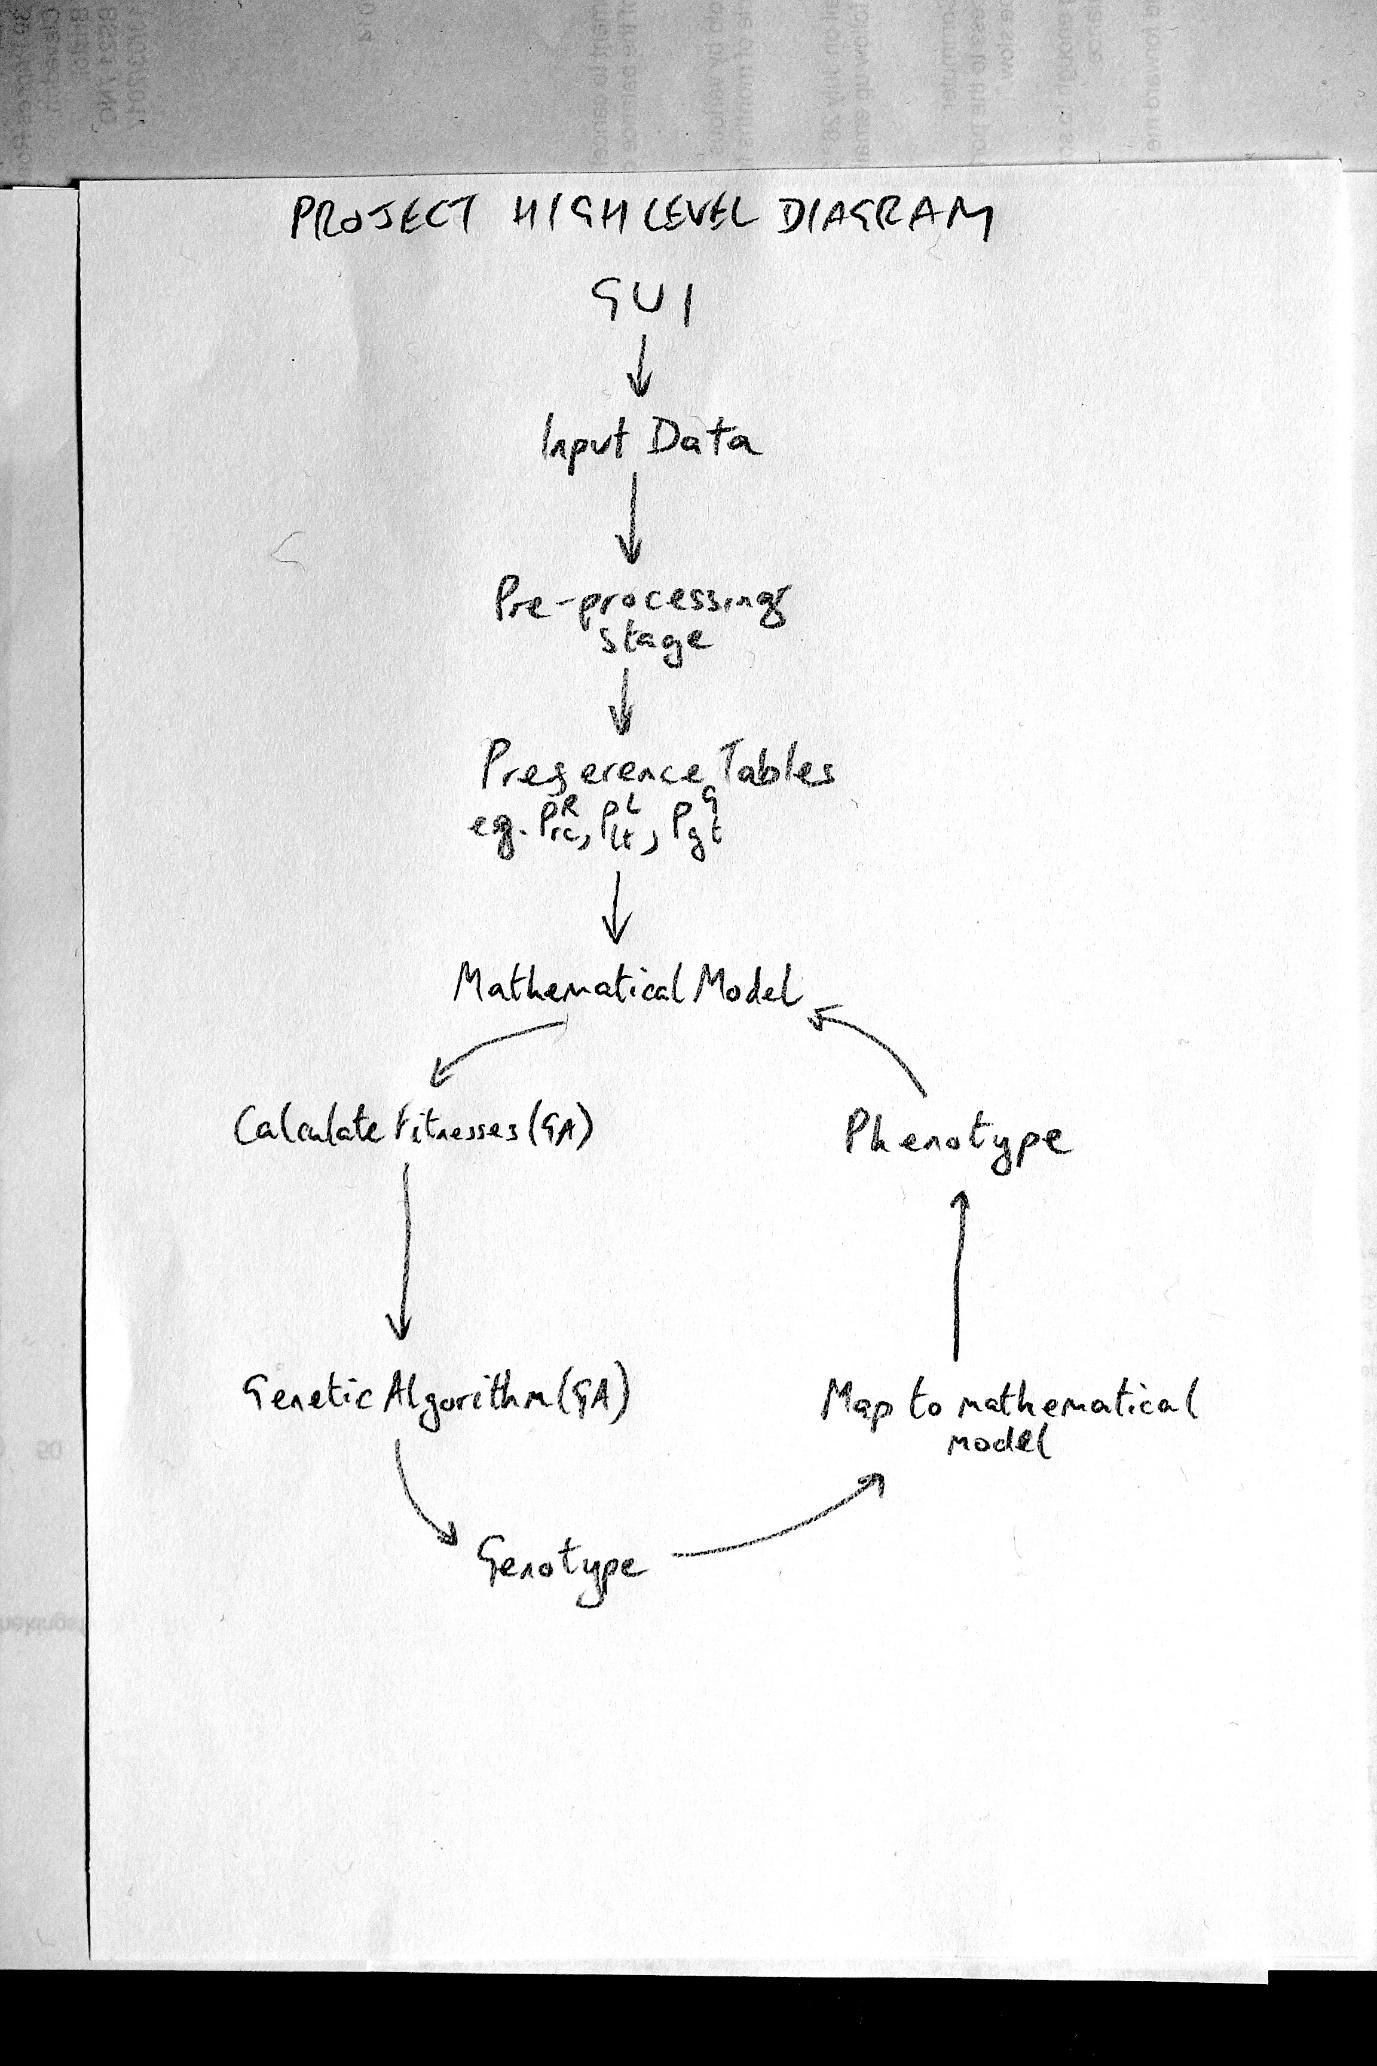 PROJECT HIGH LEVEL DIAGRAM
GUI
Input Data
Pre-processing
stage
Preference Tables
eg. P^R_rc, P^L_lt, P^G_gt
Mathematical Model
Calculate Fitnesses (GA)
Phenotype
Genetic Algorithm (GA)
Map to mathematical
model
Genotype